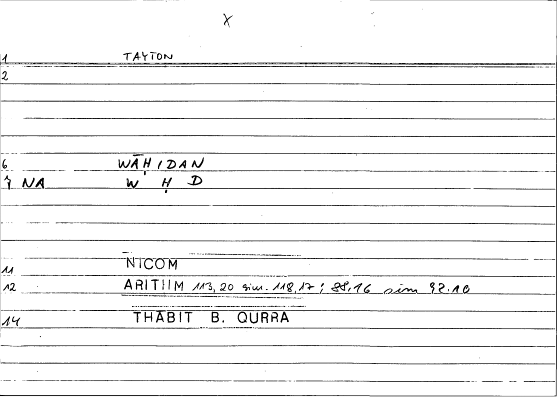 X
1 TAYTON
2
6 WĀḤIDAN
7 NA W Ḥ D
11 NICOM
12 ARITHM 113,20 sim. 118,17; 88,16 sim 92.10
14 THĀBIT B. QURRA